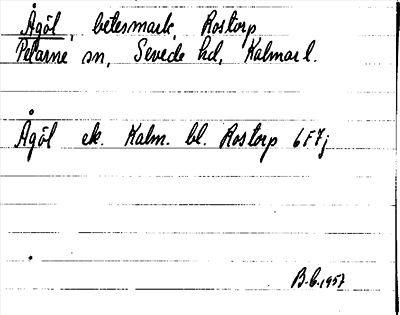 Ågöl, betesmark, Rostorp
Pelarne sn, Sevede hd, Kalmar l.
Ågöl ek. Kalm. bl. Rostorp 6F7j
B.G. 1957